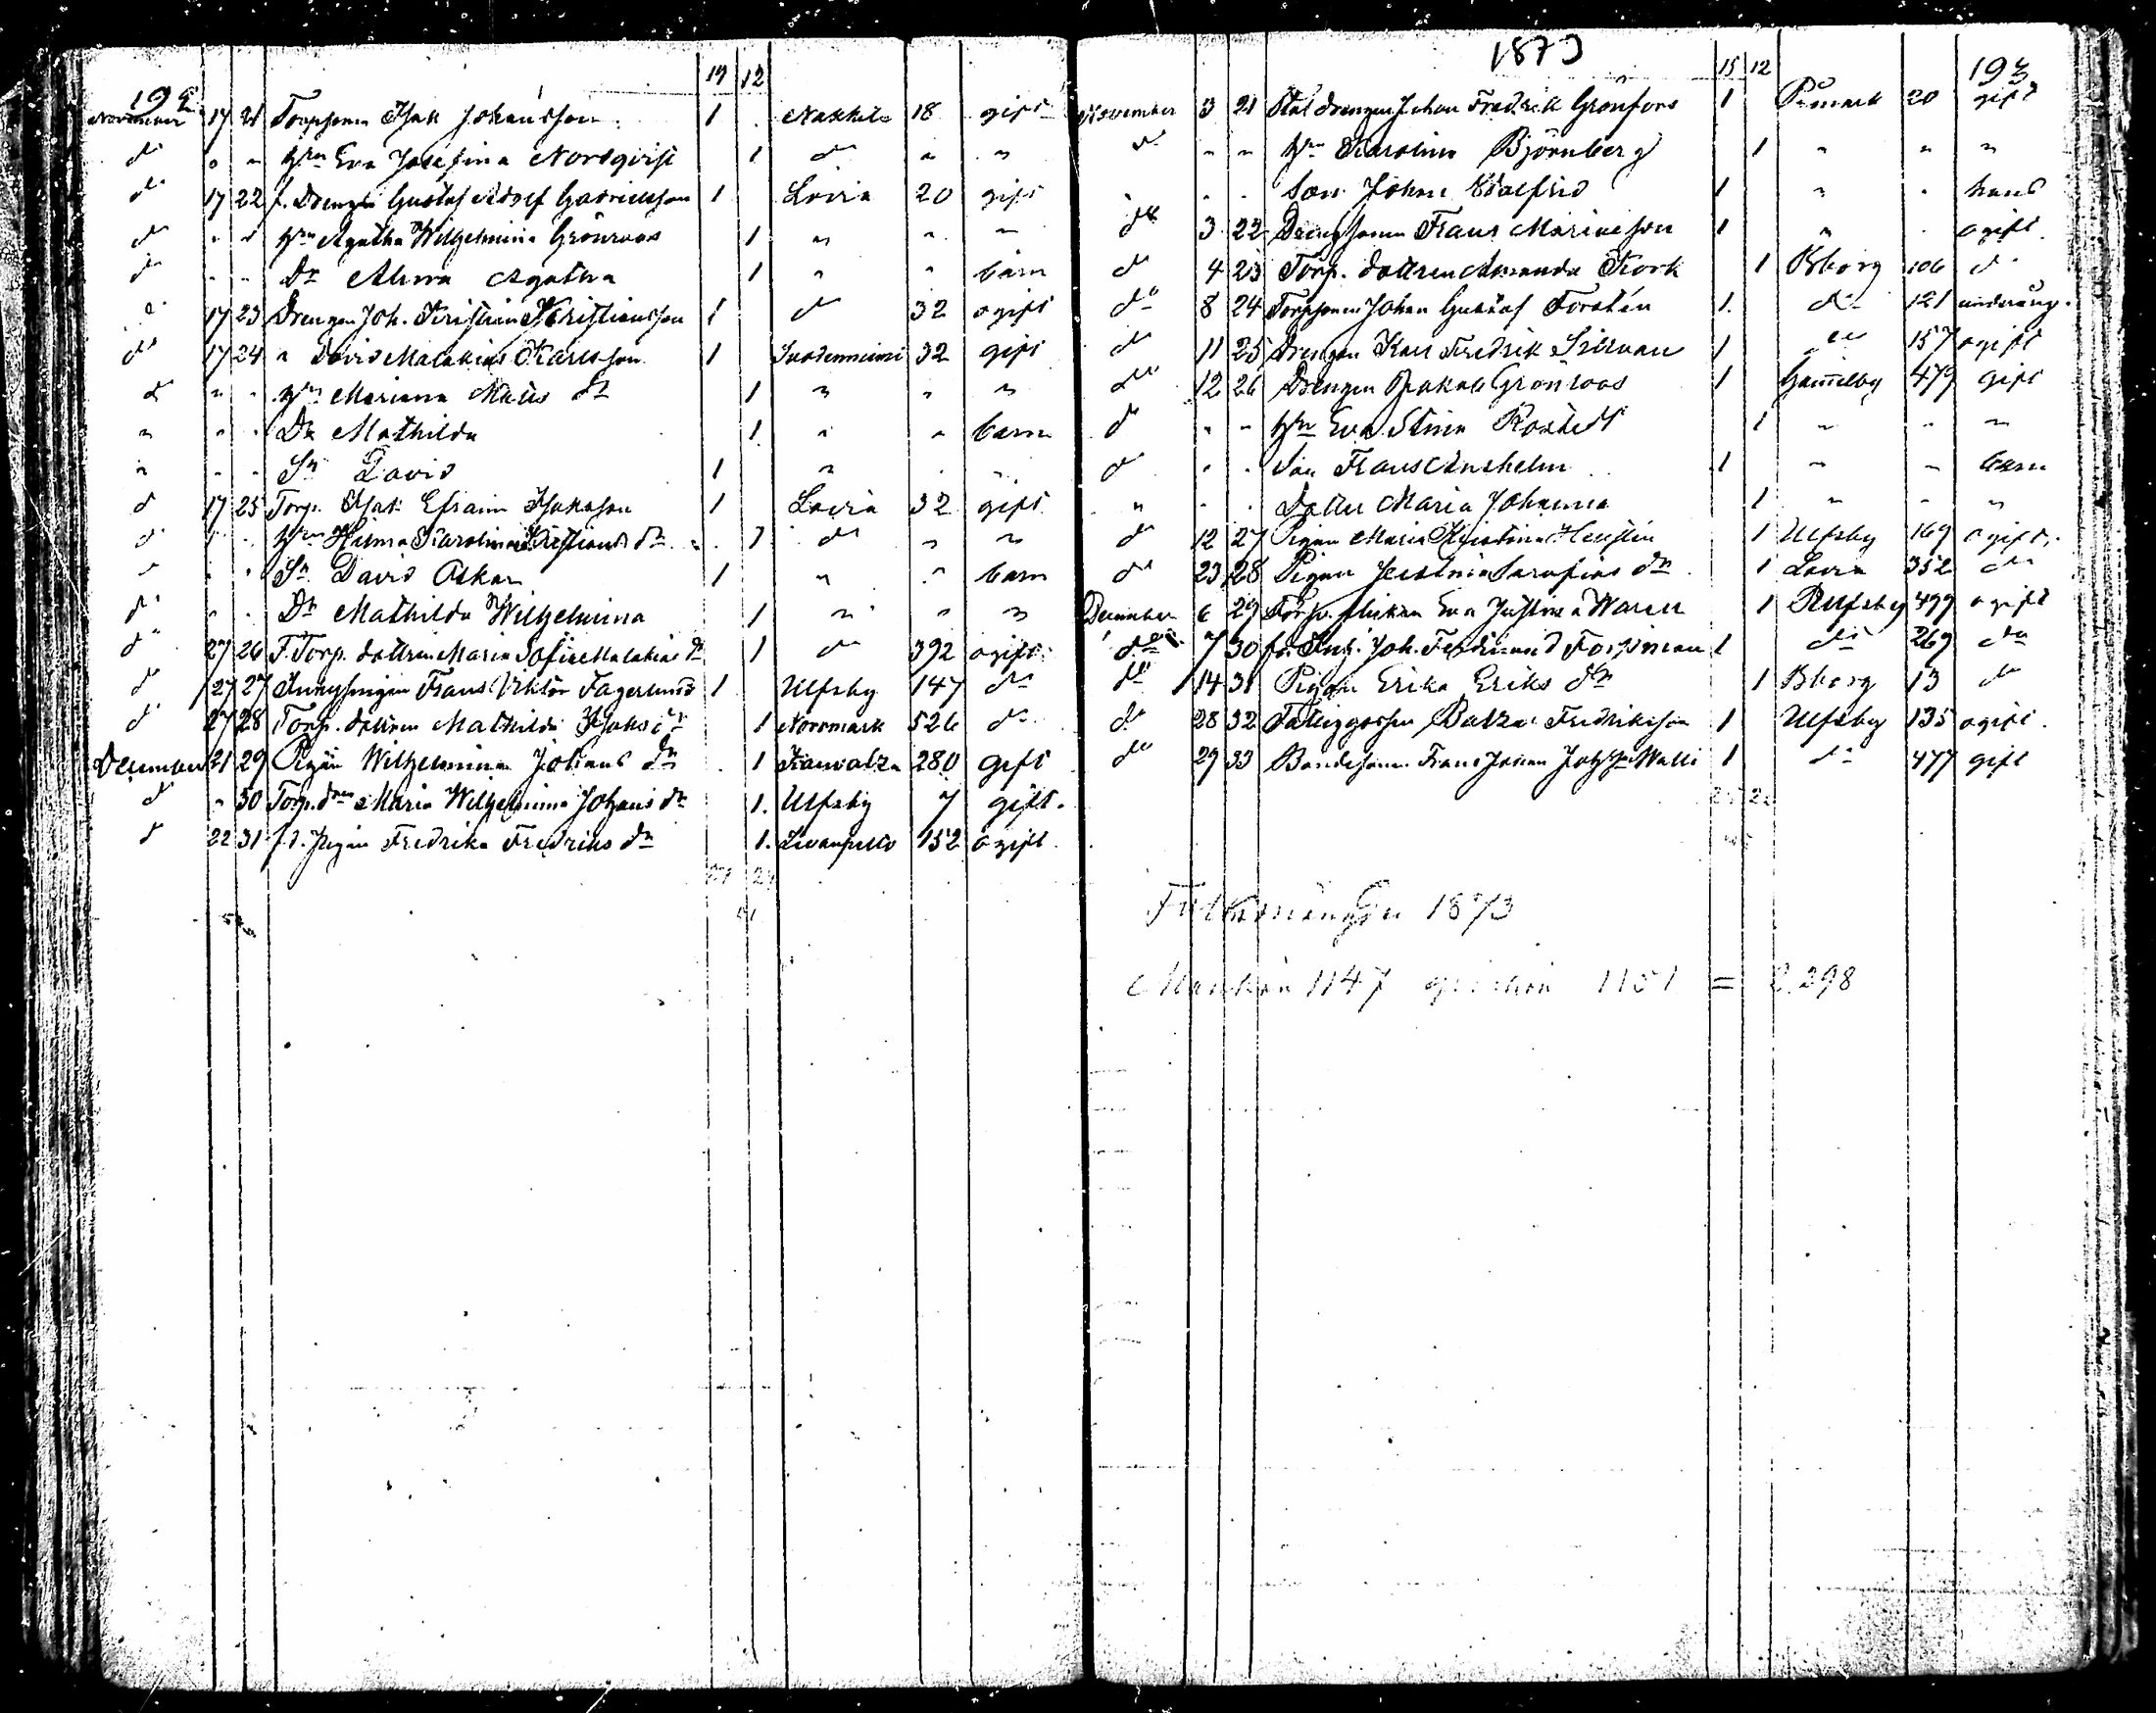 192
19 12
November 17 21 Torpsonen Isak Johansson 1 Nakkila 18 gift
do " " Hn Eva Josefina Nordqvist 1 do " "
do 17 22 f. Drengen Gustaf Adolf Gabrielsson 1 Lavia 20 gift
do " " Hn Agatha Wilhelmina Grönroos 1 " " "
do " " Dr Alma Agatha 1 " " barn
do 17 23 Drengen Joh. Kristian Kristiansson 1 do 32 ogift
do 17 24 " David Malakias Karlsson 1 Suodenniemi 32 gift
do " " Hn Mariana Matts dr 1 " " "
" " " Dr Mathilda 1 " " barn
" " " Sn David 1 " " "
do 17 25 Torp. Isak Efraim Isaksson 1 Lavia 32 gift
do " " Hn Hilma Karolina Kristians dr 1 do " "
" " " Sn David Oskar 1 " " barn
do " " Dr Mathilda Wilhelmina 1 " " "
do 27 26 F. Torp. dottren Maria Sofia Malakias dr 1 do 392 ogift
do 27 27 Ynglingen Frans Viktor Fagerlund 1 Ulfsby 147 do
do 27 28 Torp. dottren Mathilda Isaks dr 1 Norrmark 526 do
December 21 29 Pigan Wilhelmina Johans dr 1 Kankaanpää 280 gift
do " 30 Torp. dren Maria Wilhelmina Johans dr 1 Ulfsby 7 gift
do 22 31 f.d. Pigan Fredrika Fredriks dr 1 152 ogift
27 24
51
1873
193
15 12
November 3 21 Drengen Johan Fredrik Grönfors 1 Påmark 20 gift
do " " Hn Karolina Björnberg 1 " " "
" " Son Johan Walfrid 1 " " hans
do 3 22 Frans 1 " " ogift
do 4 23 Torp. dottren Amanda Kork 1 Bborg 106 do
do 8 24 Torpsonen Johan Gustaf Forstén 1 do 121 underårig
do 11 25 Drengen Karl Fredrik 1 do 157 ogift
do 12 26 Drengen Isak Grönroos 1 Gammelby 479 gift
do " " Hn Eva Stina 1 " " "
do " " Son Frans Anshelm 1 " " barn
" " " Dotter Maria Johanna 1 " " "
do 12 27 Pigan Maria Kristina 1 Ulfsby 169 ogift
do 23 28 Pigan Justina Serafias dr 1 Lavia 352 do
December 6 29 Torp. Enkan Eva Justina 1 Ulfsby 499 ogift
do 7 30 Joh. Ferdinand Forsman 1 do 269 do
do 14 31 Pigan Erika Eriks dr 1 Bborg 13 do
do 28 32 Fattiggossen Baltzar Fredriksson 1 Ulfsby 135 ogift
do 29 33 Bondesonen Frans Johan 1 do 477 gift
Folkmängden 1873
Mankön 1147 qvinkön 1151 = 2,298